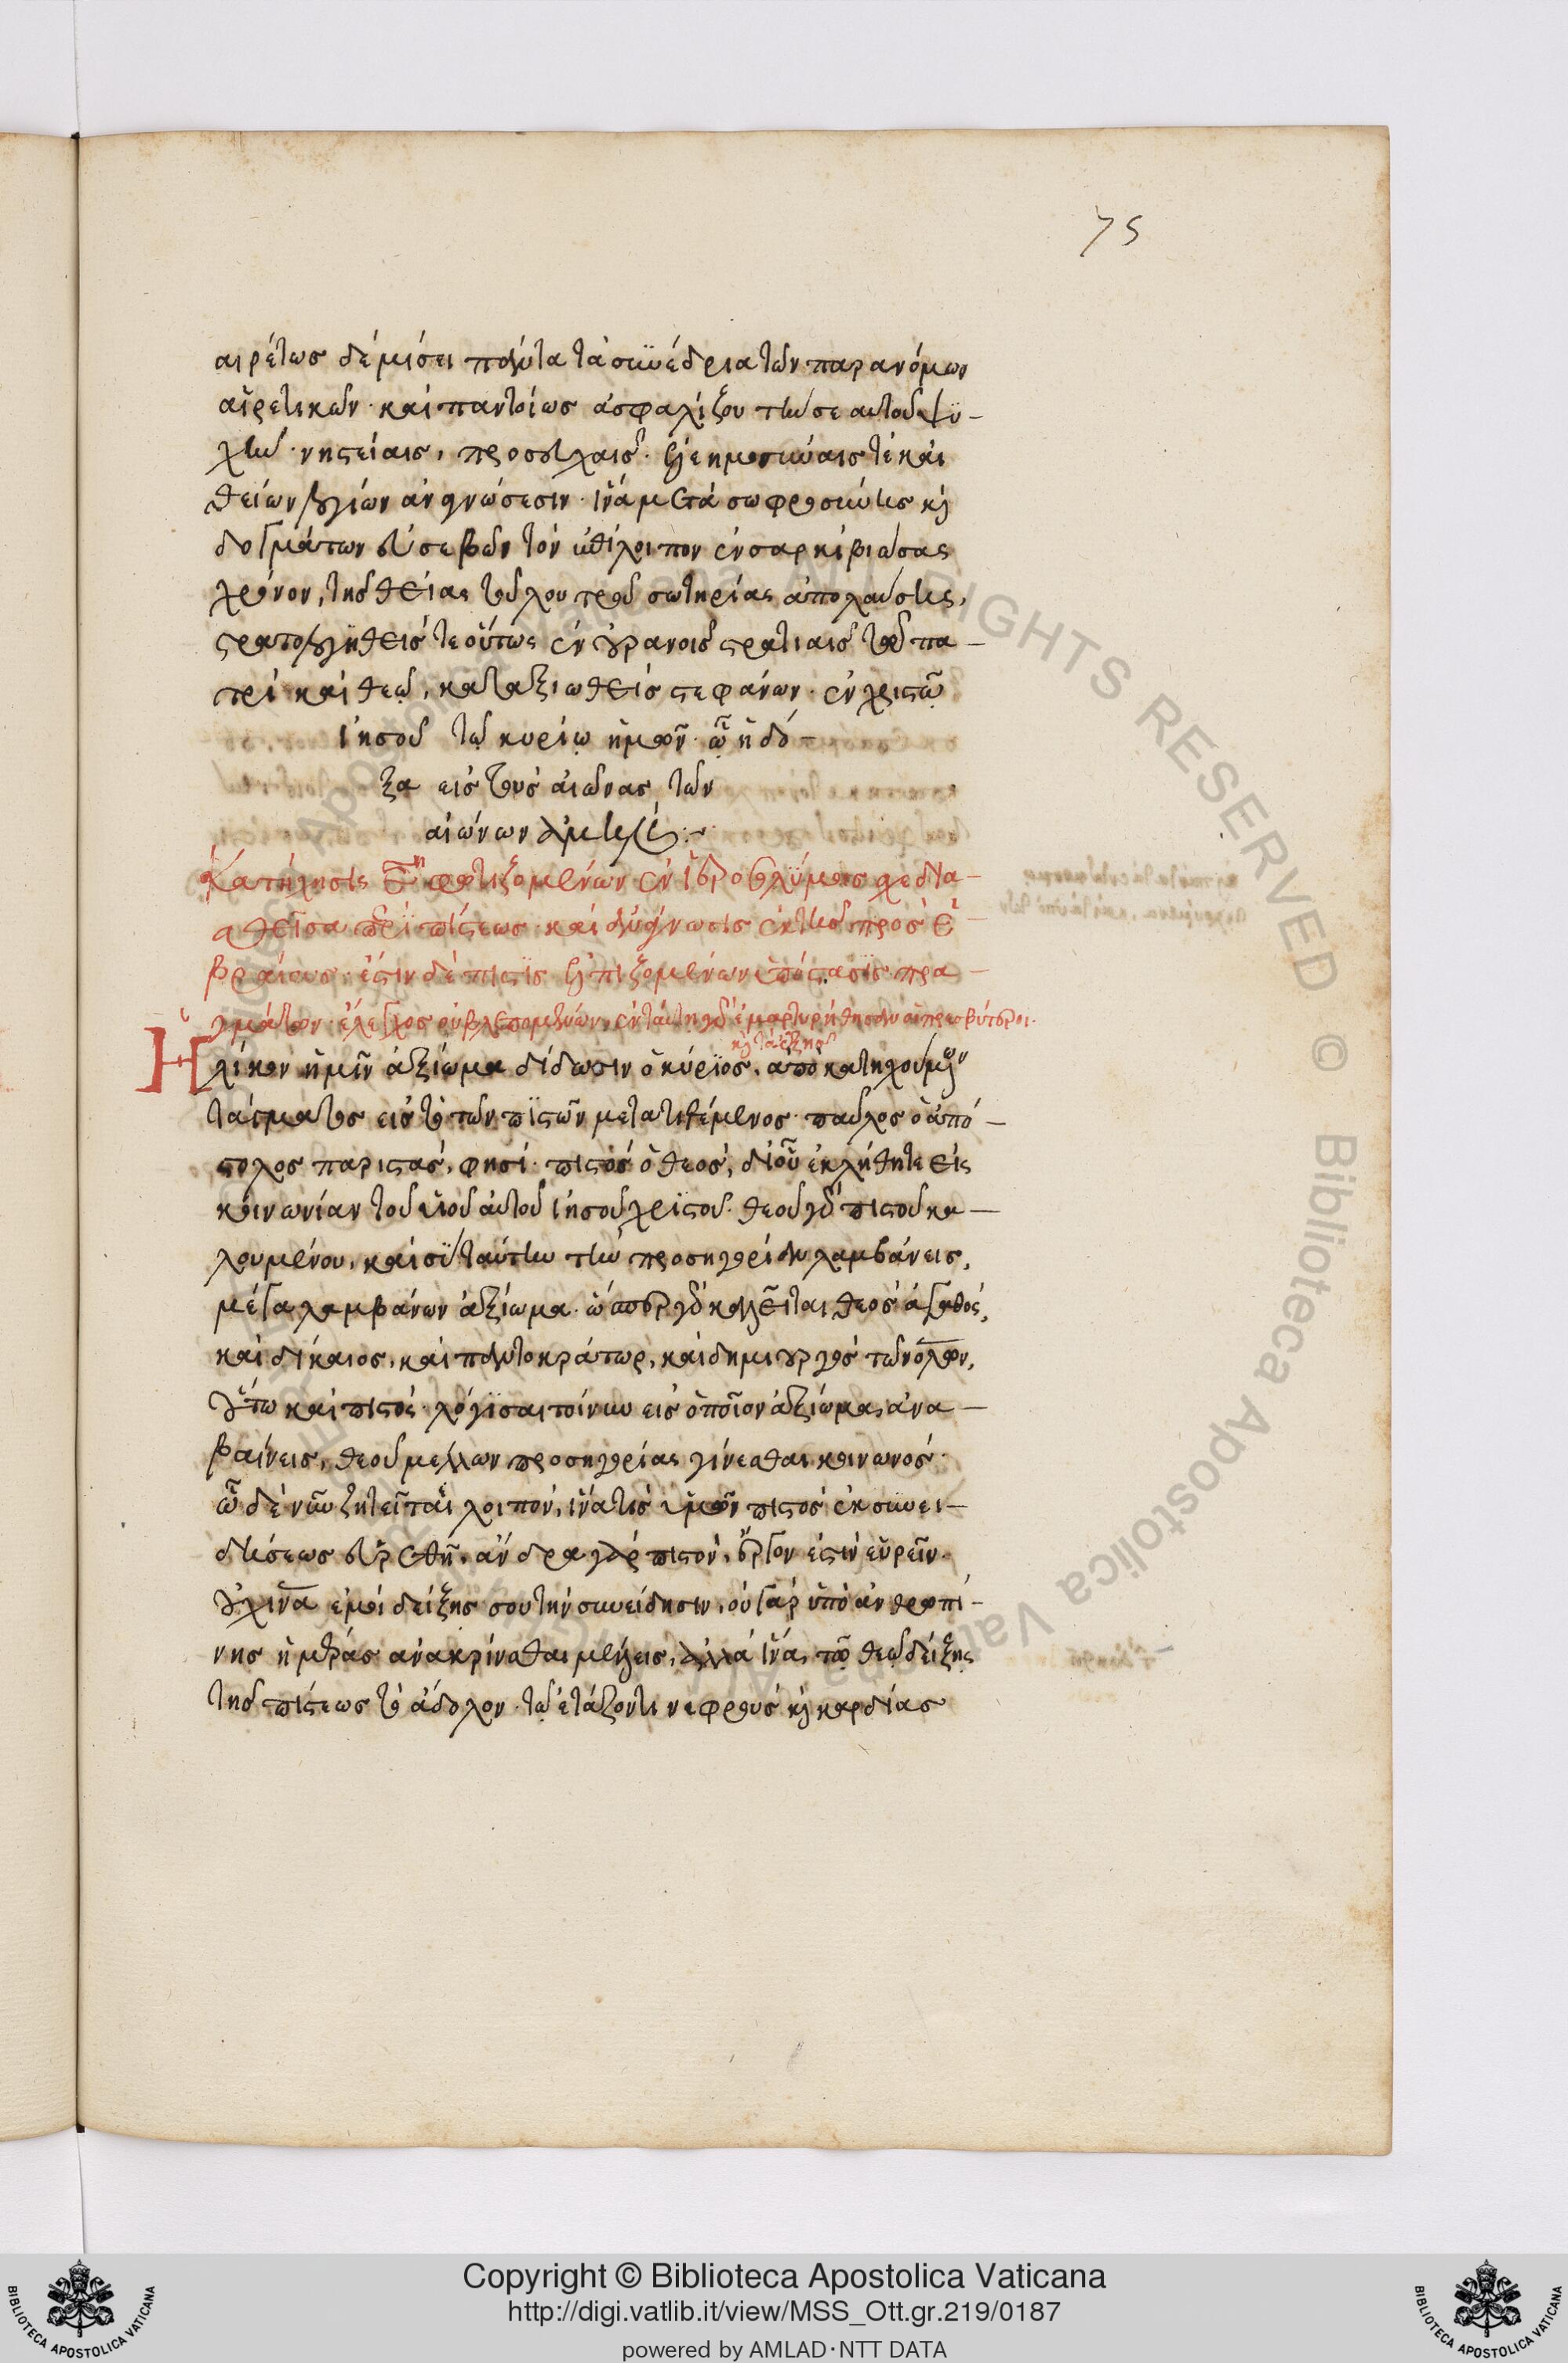 75
αιρέτως δὲ μίσει πάντα τὰ συνέδρια τῶν παρανόμων
αἱρετικῶν· καὶ παντοίως ἀσφαλίζου τὴν σεαυτοῦ ψυ-
χήν· νηστείαις, προσευχαῖς· ἐλεημοσύναις τὲ καὶ
θείων λογίων ἀναγνώσεσιν· ἵνα μετὰ σωφροσύνης κ(αὶ)
δογμάτων εὐσεβῶν τὸν ἐπίλοιπον ἐν σαρκὶ βιώσας
χρόνον, τῆς θείας τοῦ λουτροῦ σωτηρίας ἀπολαύσῃς,
στρατολογηθεὶς τε οὕτως ἐν οὐρανοῖς στρατιαῖς τῷ πα-
τρὶ καὶ θεῷ, καταξιωθεὶς στεφάνων· ἐν χριστῷ
ἰησοῦ τῷ κυρίῳ ἡμῶν· ᾧ ἡ δό-
ξα εἰς τοὺς αἰῶνας τῶν
αἰώνων ἀμήν
Κατήχησις ε΄ φωτιζομένων ἐν ἱεροσολύμοις σχεδια-
σθεῖσα περὶ πίστεως· καὶ ἀνάγνωσις ἐκ τῆς πρὸς ἑ-
βραίους· ἔστιν δὲ πίστις ἐλπιζομένων ὑπόστασις πρα-
γμάτων· ἔλεγχος οὐ βλεπομένων, ἐν ταύτῃ γὰρ ἐμαρτυρήθησαν οἱ πρεσβύτεροι·
κ(αὶ) τὰ ἑξῆς
Ἡλίκον ἡμῖν ἀξίωμα δίδωσιν ὁ κύριος, ἀπὸ κατηχουμένων
τάγματος εἰς τὸ τῶν πιστῶν μετατιθέμενος· παῦλος ὁ ἀπό-
στολος παριστάς, φησί· πιστὸς ὁ θεός, δι' οὗ ἐκλήθητε εἰς
κοινωνίαν τοῦ υἱοῦ αὐτοῦ ἰησοῦ χριστοῦ· θεοῦ γὰρ πιστοῦ κα-
λουμένου, καὶ σὺ ταύτην τὴν προσηγορίαν λαμβάνεις,
μέγα λαμβάνων ἀξίωμα· ὥσπερ γὰρ καλεῖται θεὸς ἀγαθός,
καὶ δίκαιος, καὶ παντοκράτωρ, καὶ δημιουργὸς τῶν ὅλων,
οὕτω καὶ πιστός· λόγισαι τοίνυν εἰς ὁποῖον ἀξίωμα ἀνα-
βαίνεις, θεοῦ μέλλων προσηγορίας γίνεσθαι κοινωνός·
ὧδε νῦν ζητεῖται λοιπόν, ἵνα τις ὑμῶν πιστὸς ἐκ συνει-
δήσεως εὑρεθῇ, ἄνδρα γὰρ πιστόν, ἔργον ἐστὶν εὑρεῖν·
οὐχ ἵνα ἐμοὶ δείξῃς σου τὴν συνείδησιν, οὐ γὰρ ὑπὸ ἀνθρωπί-
νης ἡμέρας ἀνακρίνεσθαι μέλλεις, ἀλλὰ ἵνα τῷ θεῷ δείξῃς
τῆς πίστεως τὸ ἄδολον· τῷ ἐτάζοντι νεφροὺς κ(αὶ) καρδίας
Copyright © Biblioteca Apostolica Vaticana
http://digi.vatlib.it/view/MSS_Ott.gr.219/0187
powered by AMLAD·NTT DATA